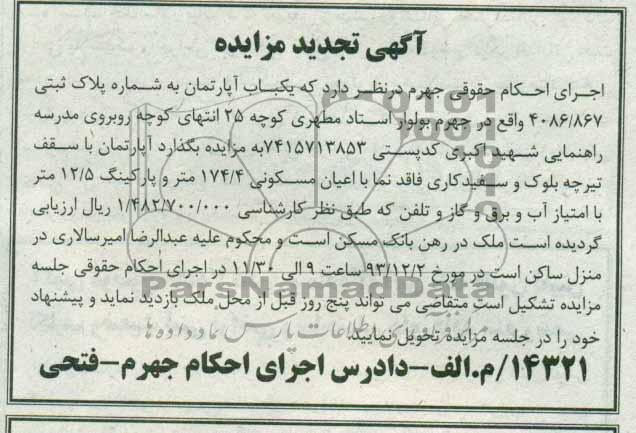 آگهی تجدید مزایده
اجرای احکام حقوقی جهرم درنظر دارد که یکباب آپارتمان به شماره پلاک ثبتی
۴۰۸۶/۸۶۷ واقع در جهرم بولوار استاد مطهری کوچه ۲۵ انتهای کوچه روبروی مدرسه
راهنمایی شهید اکبری کدپستی ۷۴۱۵۷۱۳۸۵۳به مزایده بگذارد آپارتمان با سقف
تیرچه بلوک و سفیدکاری فاقد نما با اعیان مسکونی ۱۷۴/۴ متر و پارکینگ ۱۲/۵ متر
با امتیاز آب و برق و گاز و تلفن که طبق نظر کارشناسی ۱/۴۸۲/۷۰۰/۰۰۰ ریال ارزیابی
گردیده است ملک در رهن بانک مسکن است و محکوم علیه عبدالرضا امیرسالاری در
منزل ساکن است در مورخ ۹۳/۱۲/۲ ساعت ۹ الی ۱۱/۳۰ در اجرای احکام حقوقی جلسه
ParsNamadData
مزایده تشکیل است متقاضی می تواند پنج روز قبل از محل ملک بازدید نماید و پیشنهاد
خود را در جلسه مزایده تحویل نمایید.
۱۴۳۲۱/م.الف-دادرس اجرای احکام جهرم-فتحی